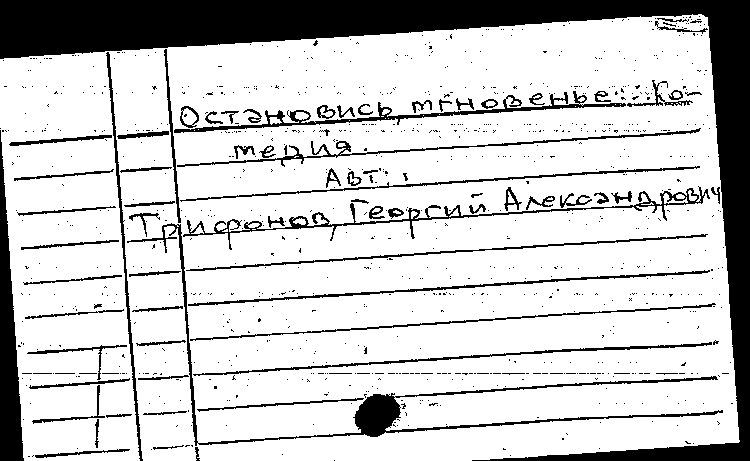 Остановись, мгновенье...: Ко-
медия.
Авт.:
Трифонов, Георгий Александрович